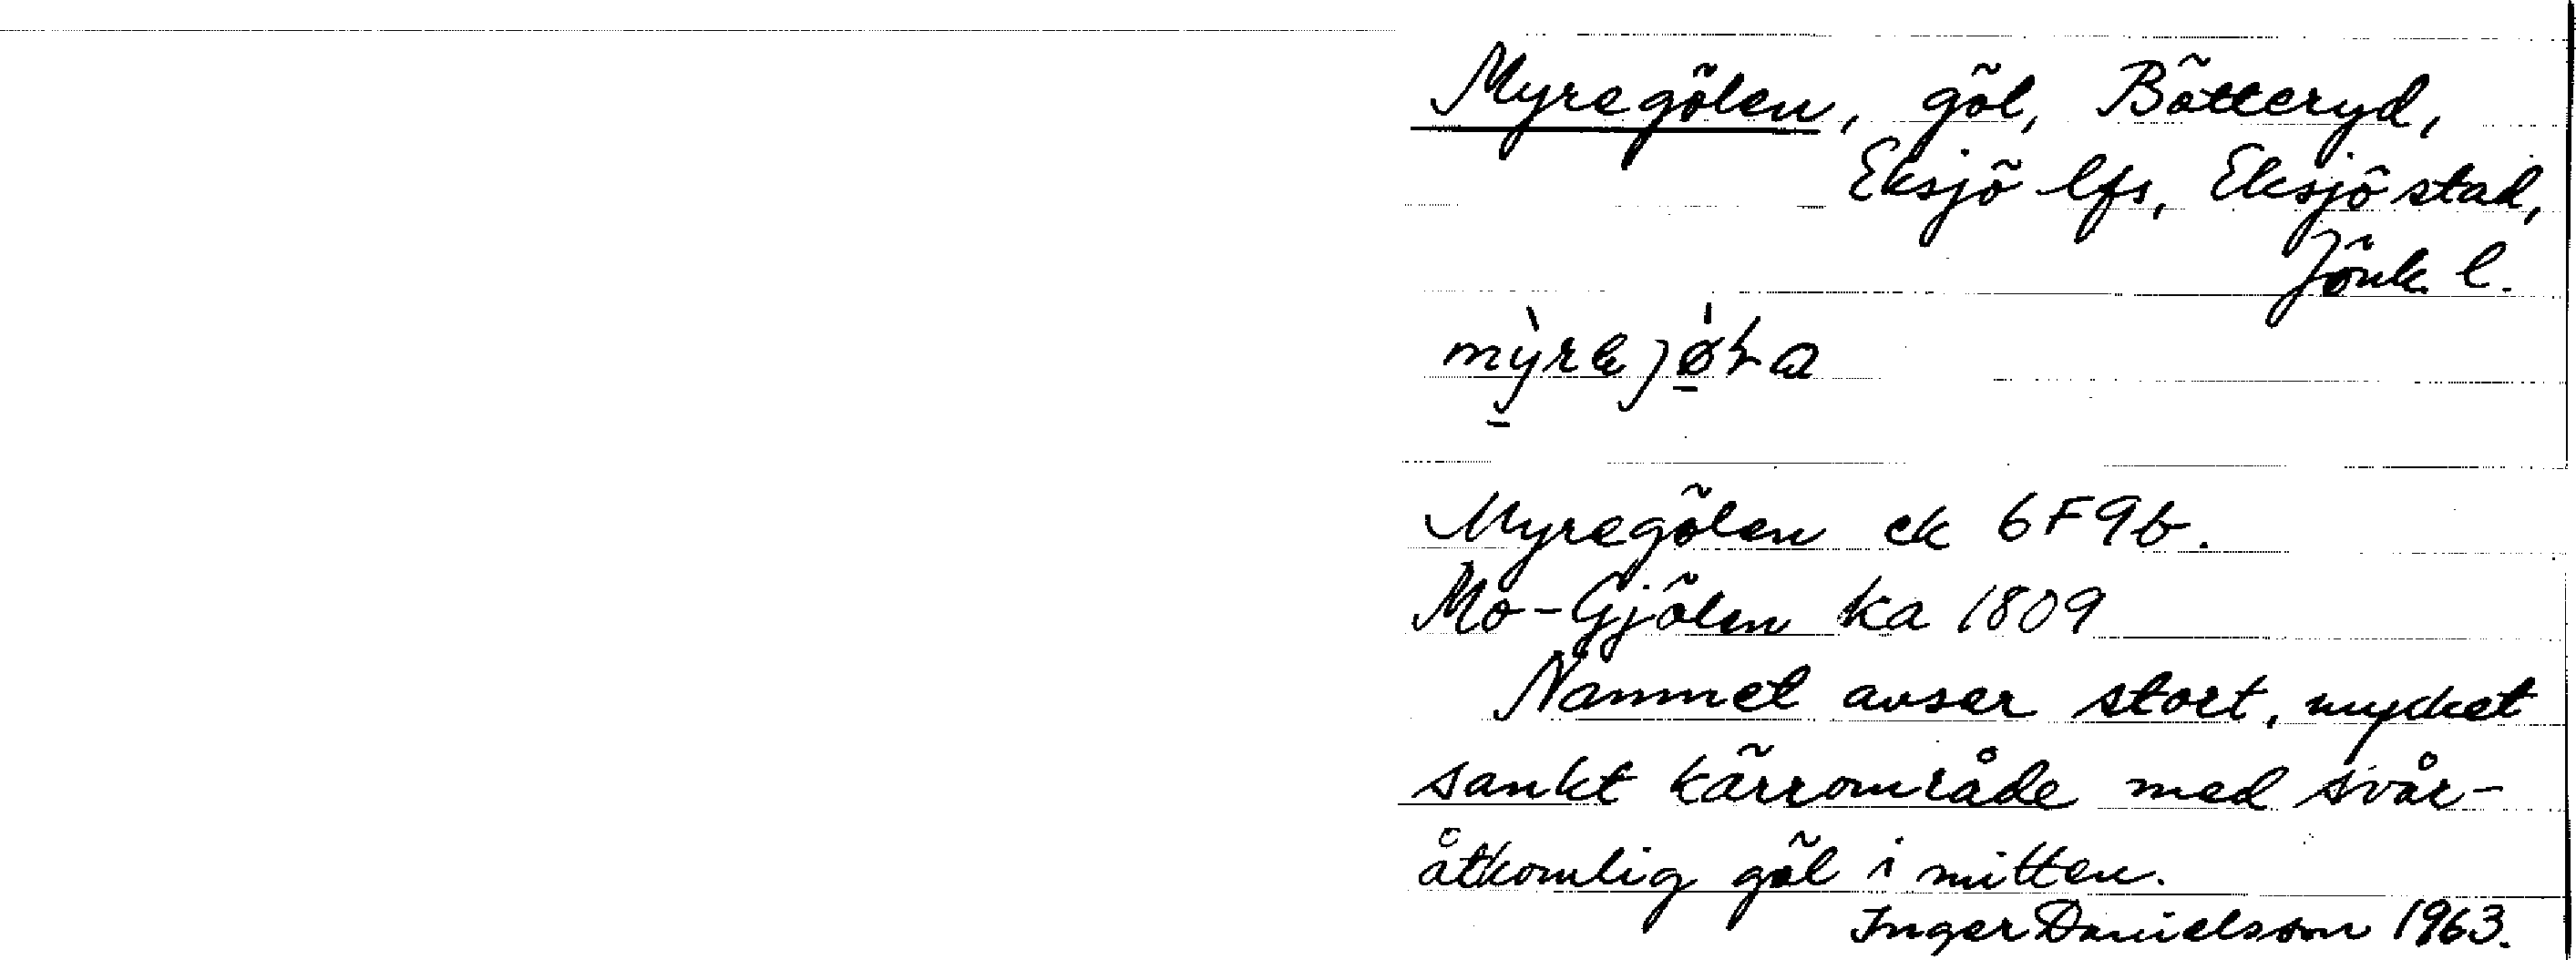 Myregölen, göl, Bötteryd,
Eksjö lfs, Eksjö stad,
Jönk. l.
Myregölen ek 6F9b.
Mo-Gjölen ka 1809
Namnet avser stort, mycket
sankt kärrområde med svår-
åtkomlig göl i mitten.
Inger Danielsson 1963.